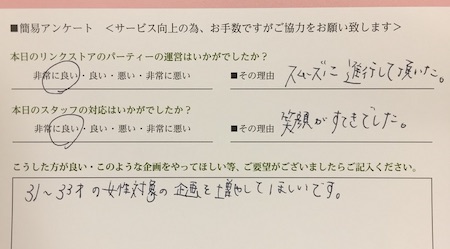 ■簡易アンケート ＜サービス向上の為、お手数ですがご協力をお願い致します＞
本日のリンクストアのパーティーの運営はいかがでしたか？
非常に良い・良い・悪い・非常に悪い ■その理由 スムーズに進行して頂いた。
本日のスタッフの対応はいかがでしたか？
非常に良い・良い・悪い・非常に悪い ■その理由 笑顔がすてきでした。
こうした方が良い・このような企画をやってほしい等、ご要望がございましたらご記入ください。
31～33才の女性対象の企画を増やしてほしいです。